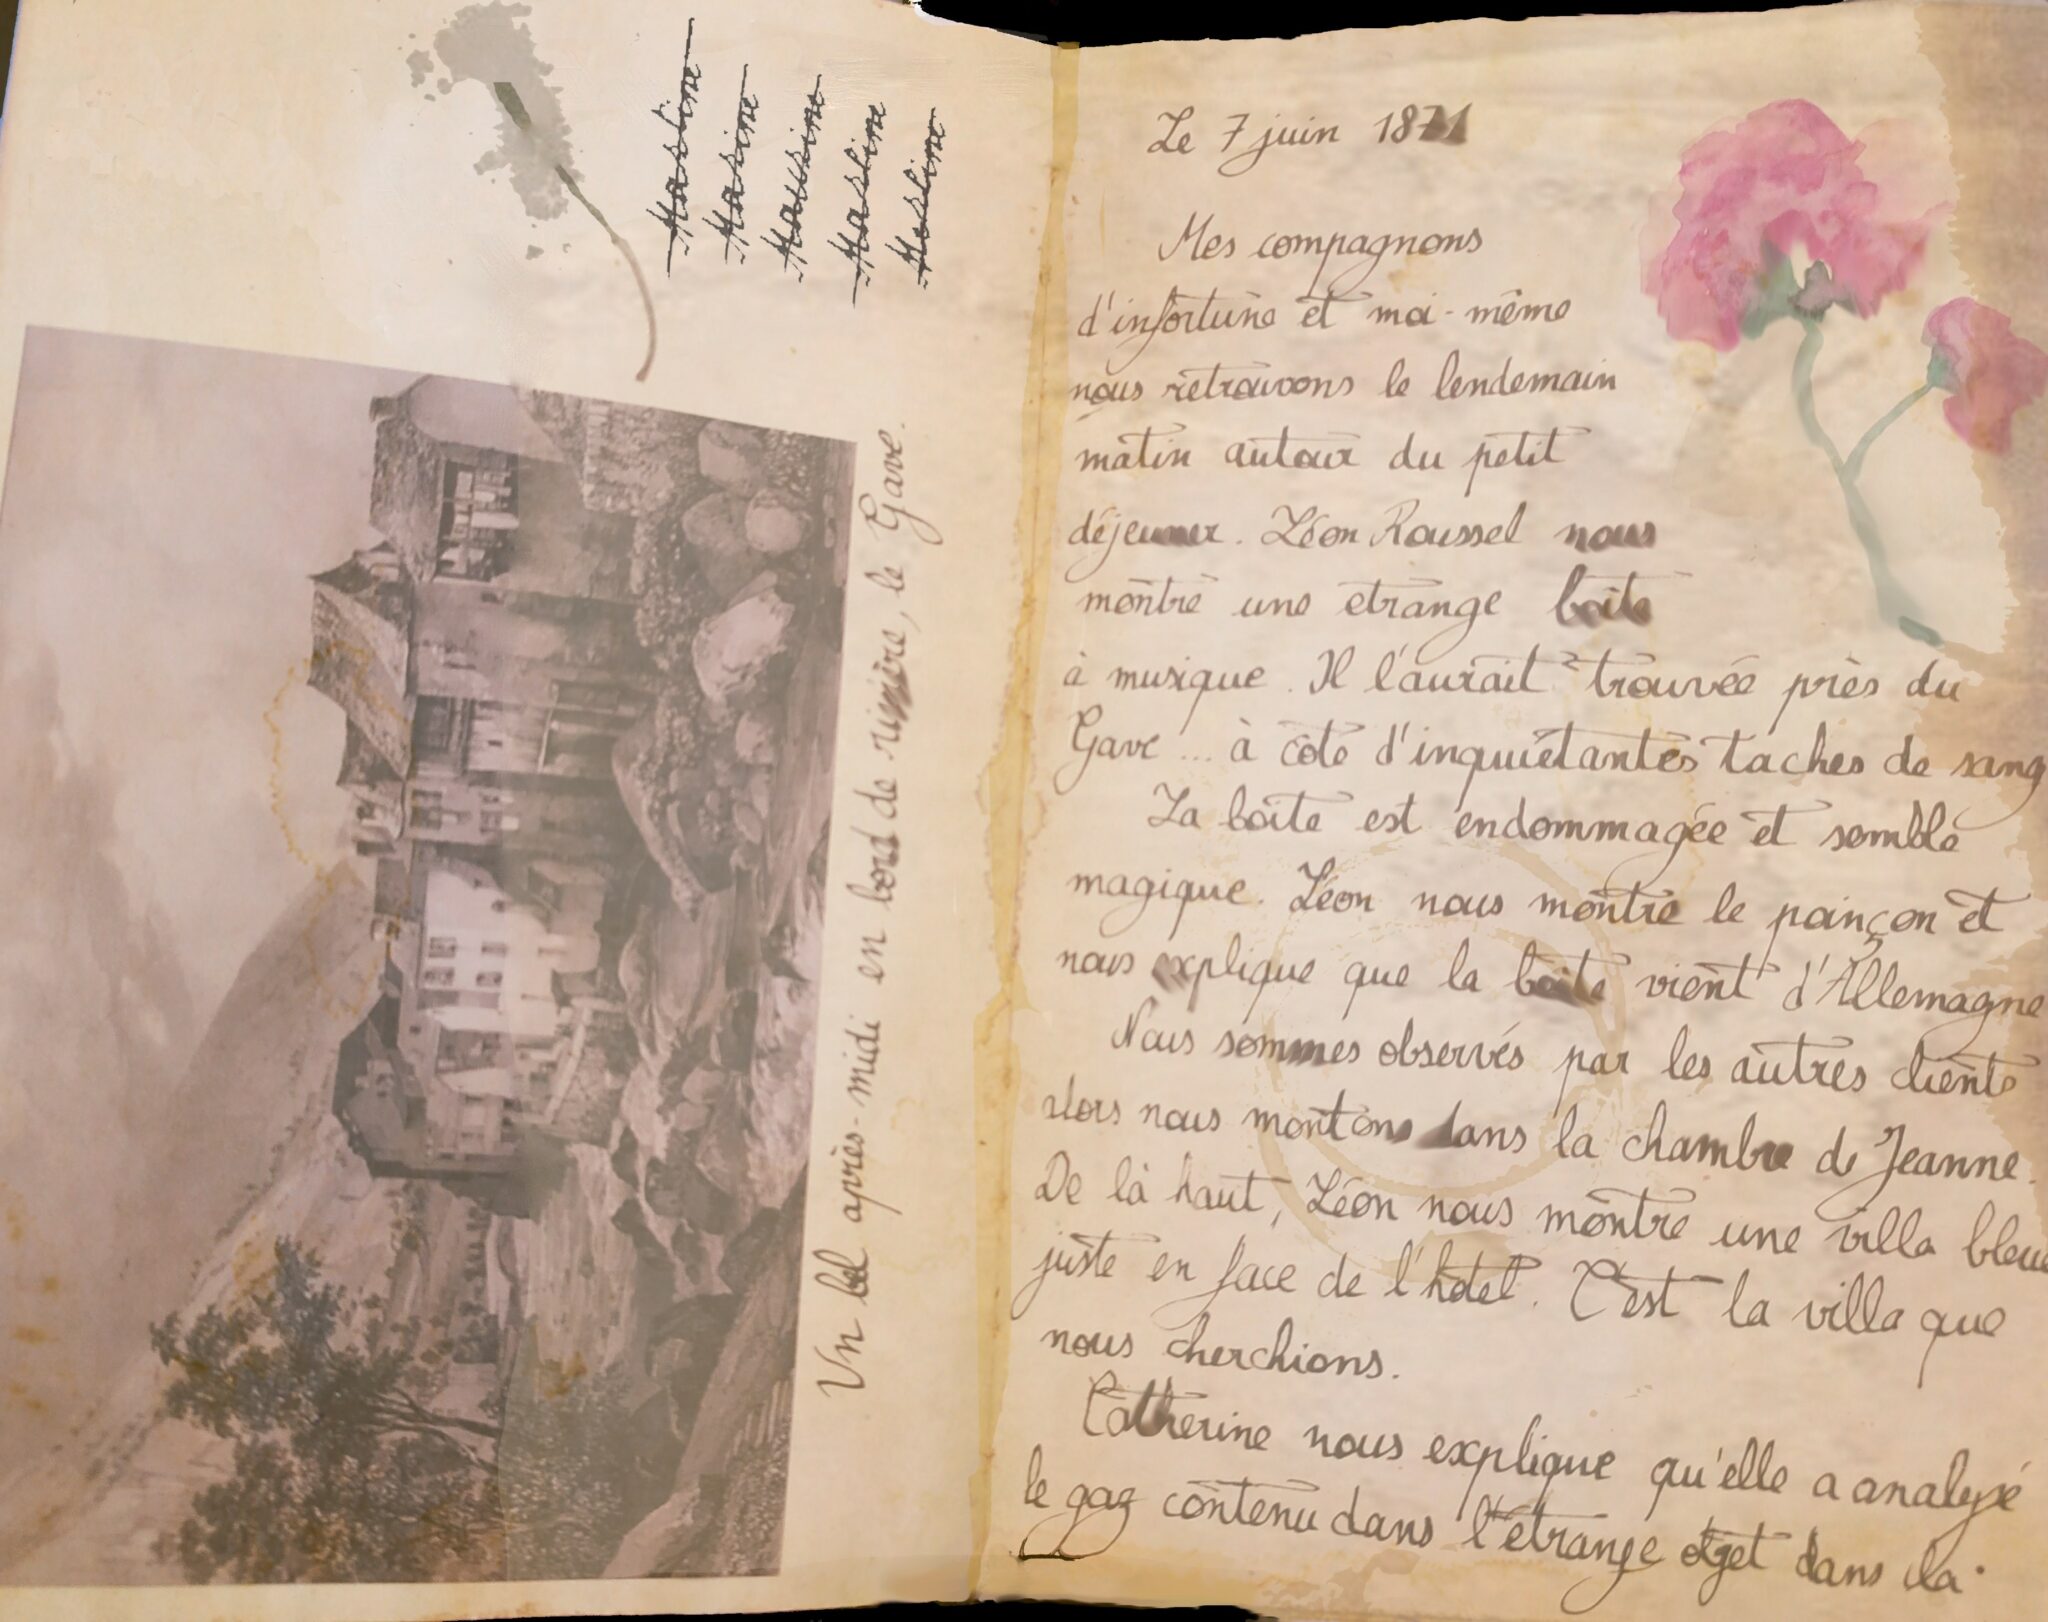 Masline
Masine
Massine
Masline
Meslime
Un bel après-midi en bord de rivière, le Gave.
Le 7 juin 1871
Mes compagnons
d'infortune et moi-même
nous retrouvons le lendemain
matin autour du petit
déjeuner. Léon Roussel nous
montre une étrange boîte
à musique. Il l'aurait trouvée près du
Gave... à côté d'inquiétantes taches de sang
La boîte est endommagée et semble
magique. Léon nous montre le poinçon et
nous explique que la boîte vient d'Allemagne
Nous sommes observés par les autres clients
alors nous montons dans la chambre de Jeanne.
De là haut, Léon nous montre une villa bleue
juste en face de l'hôtel. C'est la villa que
nous cherchions.
Catherine nous explique qu'elle a analysé
le gaz contenu dans l'étrange objet dans la